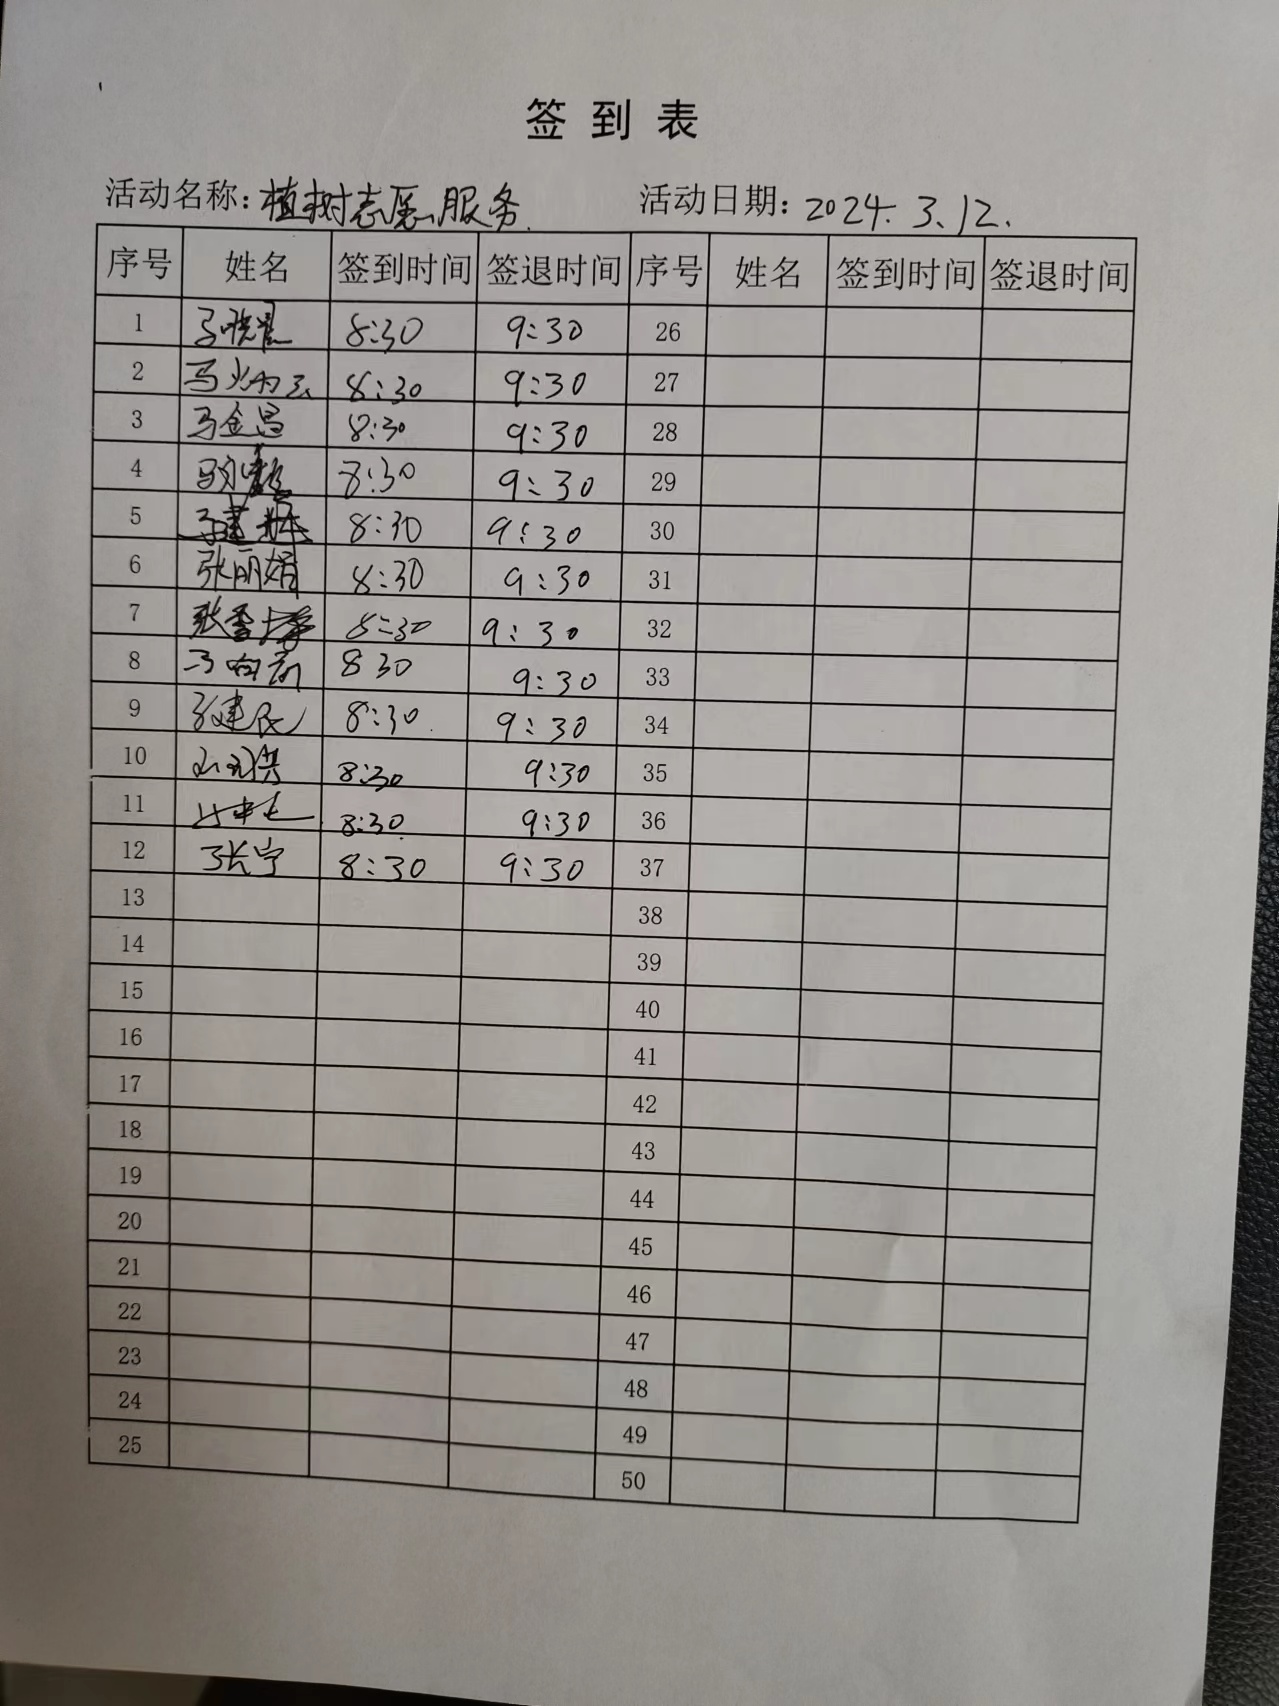 签到表
活动名称：植树志愿服务 活动日期：2024.3.12.
序号 姓名 签到时间 签退时间 序号 姓名 签到时间 签退时间
1 8:30 9:30 26
2 8:30 9:30 27
3 马金昌 8:30 9:30 28
4 8:30 9:30 29
5 8:30 9:30 30
6 张丽娟 8:30 9:30 31
7 8:30 9:30 32
8 马向前 8 30 9:30 33
9 8:30 9:30 34
10 8:30 9:30 35
11 8:30 9:30 36
12 8:30 9:30 37
13 38
14 39
15 40
16 41
17 42
18 43
19 44
20 45
21 46
22 47
23 48
24 49
25 50